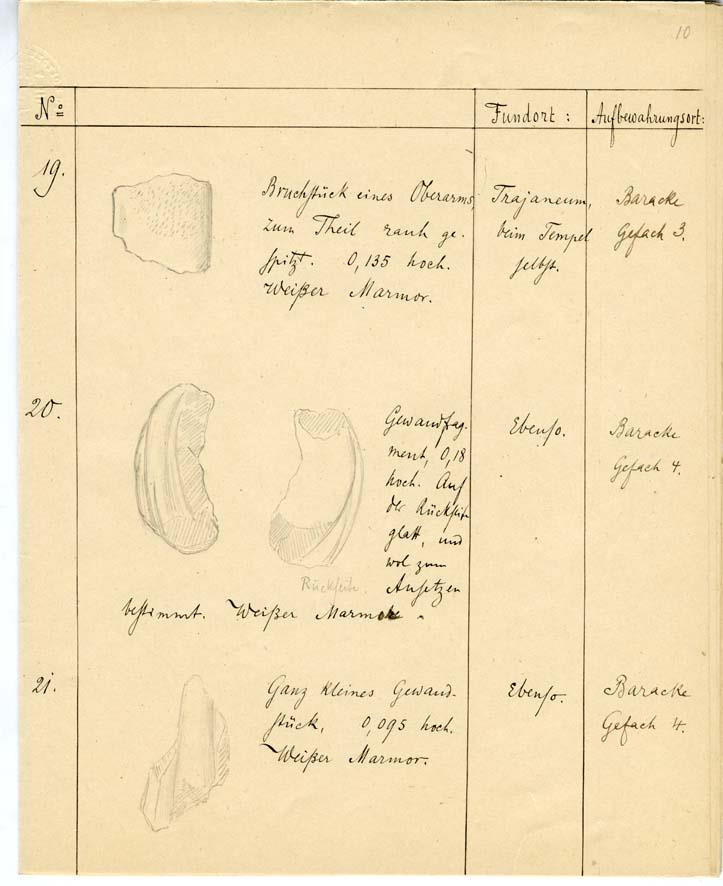 10
No Fundort: Aufbewahrungsort:
19.
Bruchstück eines Oberarms,
zum Theil rauh ge-
spitzt. 0,135 hoch.
Weißer Marmor.
Trajaneum,
beim Tempel
selbst.
Baracke
Gefach 3.
20.
Gewandfrag-
ment, 0,18
hoch. Auf
der Rückseite
glatt, und
wol zum
Ansetzen
bestimmt. Weißer Marmor.
Rückseite.
Ebenso.
Baracke
Gefach 4.
21.
Ganz kleines Gewand-
stück, 0,095 hoch.
Weißer Marmor.
Ebenso.
Baracke
Gefach 4.